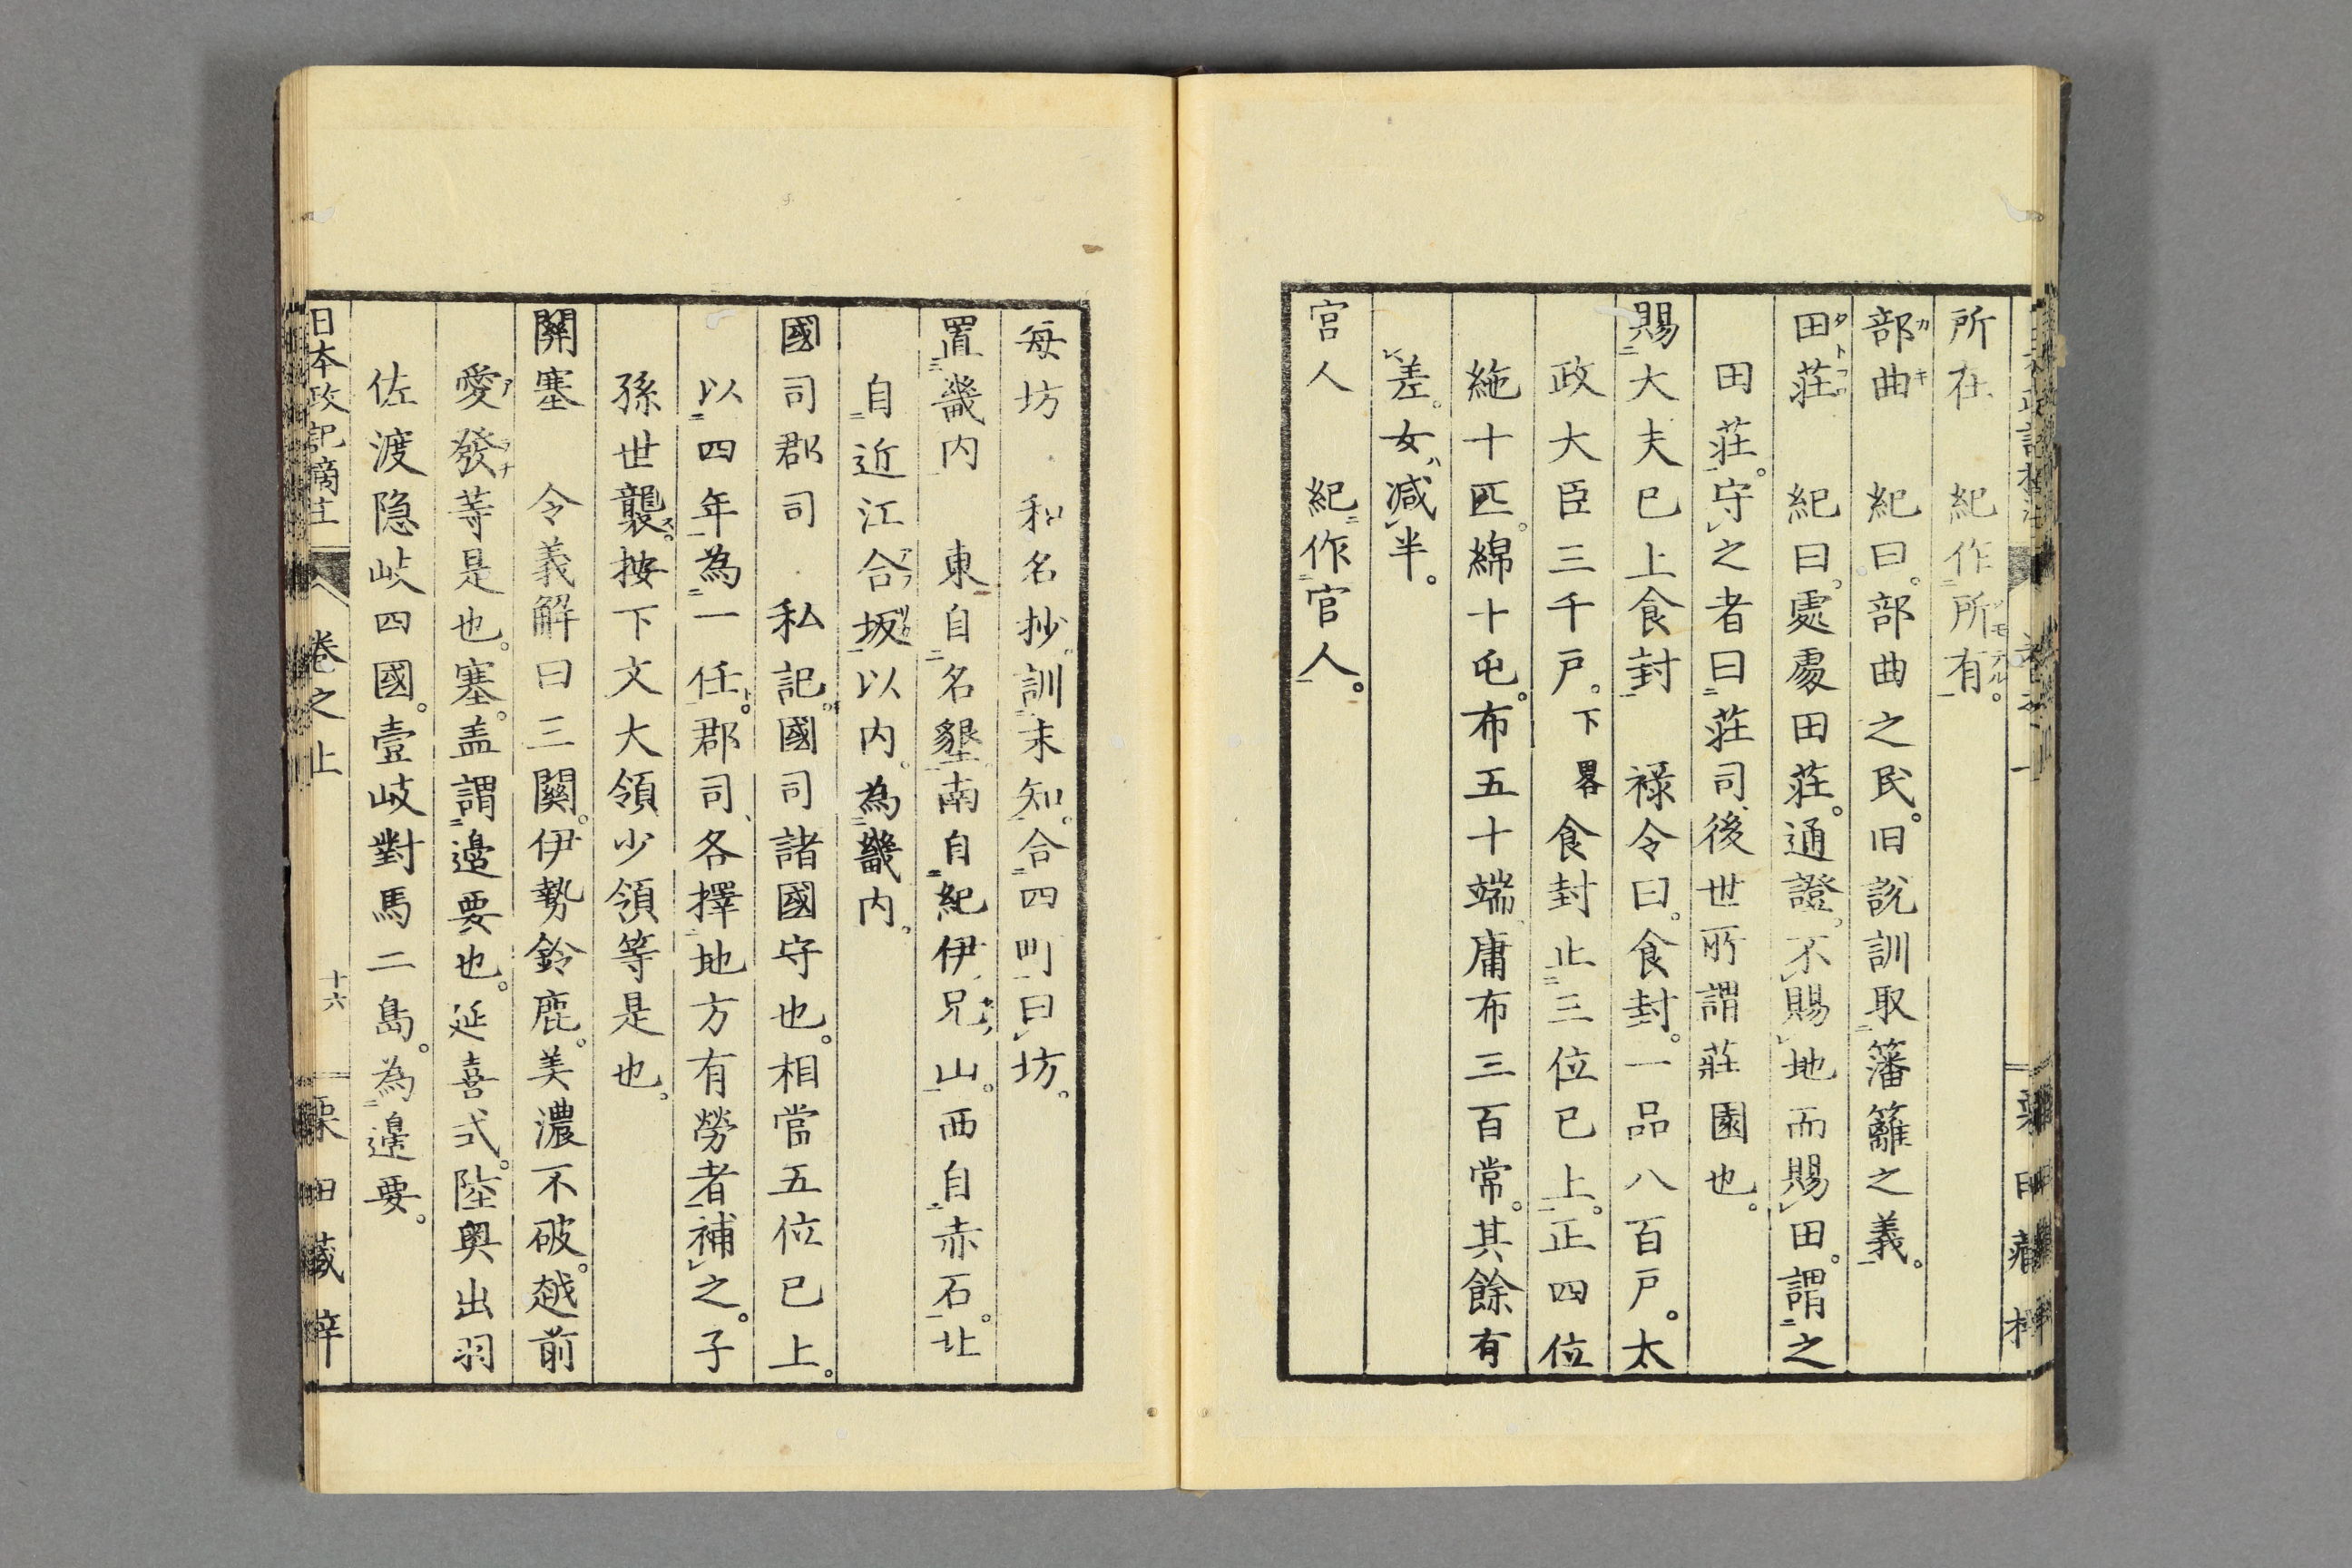 所在　紀作所有。
部曲　紀曰。部曲之民。旧説訓取籓籬之義。
田莊　紀曰。處處田莊。通證。不賜地而賜田。謂之
田莊。守之者曰莊司、後世所謂莊園也。
賜大夫已上食封　禄令曰。食封。一品八百戸。太
政大臣三千戸。下畧食封止三位已上。正四位
絁十匹。綿十屯。布五十端、庸布三百常。其餘有
差。女減半。
官人　紀作官人。
每坊　和名抄。訓末知。合四町曰坊。
置畿内　東自名墾南自紀伊兄山。西自赤石。北
自近江合坂以内。為畿内。
國司郡司　私記。國司諸國守也。相當五位已上。
以四年為一任。郡司、各擇地方有勞者補之。子
孫世襲。按下文大領少領等是也。
關塞　令義解曰三關。伊勢鈴鹿。美濃不破。越前
愛發等是也。塞。盖謂邊要也。延喜式。陸奥出羽
佐渡隐岐四國。壹岐對馬二島。為邊要。
日本政記摘註　卷之上　十六　栗田藏梓